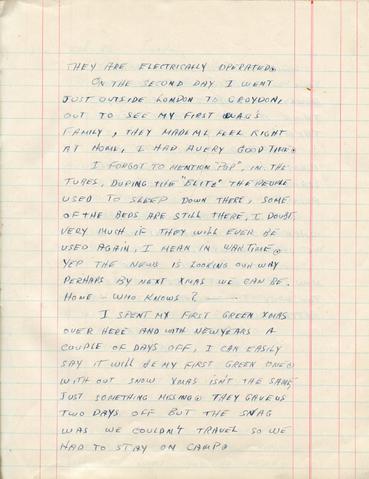 THEY ARE ELECTRICALLY OPERATED.
ON THE SECOND DAY I WENT
JUST OUTSIDE LONDON TO CROYDON,
OUT TO SEE MY FIRST WAG'S
FAMILY, THEY MADE ME FEEL RIGHT
AT HOME, I HAD A VERY GOOD TIME.
I FORGOT TO MENTION "POP", IN THE
TUBES, DURING THE "BLITZ" THE PEOPLE
USED TO SLEEP DOWN THERE, SOME
OF THE BEDS ARE STILL THERE, I DOUBT
VERY MUCH IF THEY WILL EVER BE
USED AGAIN, I MEAN IN WAR TIME.
YEP THE NEWS IS LOOKING OUR WAY
PERHAPS BY NEXT XMAS WE CAN BE.
HOME - WHO KNOWS? -
I SPENT MY FIRST GREEN XMAS
OVER HERE AND WITH NEW YEARS A
COUPLE OF DAYS OFF, I CAN EASILY
SAY IT WILL BE MY FIRST GREEN ONE.
WITH OUT SNOW XMAS ISN'T THE SAME
JUST SOMETHING MISSING. THEY GAVE US
TWO DAYS OFF BUT THE SNAG
WAS WE COULDN'T TRAVEL SO WE
HAD TO STAY ON CAMP.